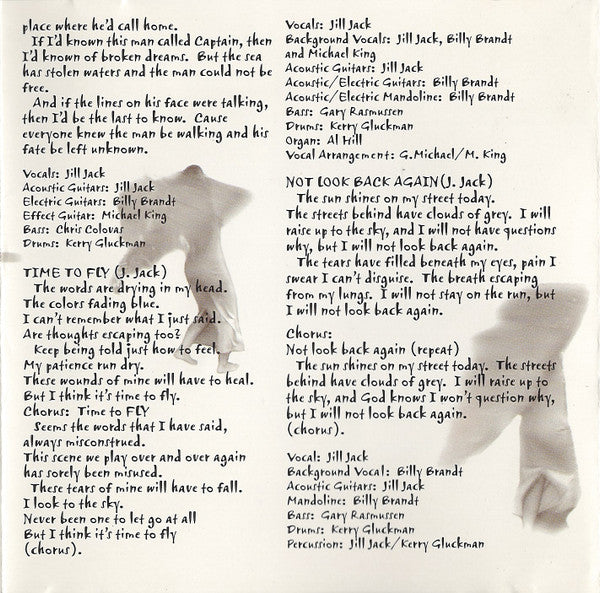 place where he'd call home.
If I'd known this man called Captain, then
I'd known of broken dreams. But the sea
has stolen waters and the man could not be
free.
And if the lines on his face were talking,
then I'd be the last to know. Cause
everyone knew the man be walking and his
fate be left unknown.
Vocals: Jill Jack
Acoustic Guitars: Jill Jack
Electric Guitars: Billy Brandt
Effect Guitar: Michael King
Bass: Chris Colovas
Drums: Kerry Gluckman
TIME TO FLY (J. Jack)
The words are drying in my head.
The colors fading blue.
I can't remember what I just said.
Are thoughts escaping too?
Keep being told just how to feel.
My patience run dry.
These wounds of mine will have to heal.
But I think it's time to fly.
Chorus: Time to FLY
Seems the words that I have said,
always misconstrued.
This scene we play over and over again
has sorely been misused.
These tears of mine will have to fall.
I look to the sky.
Never been one to let go at all
But I think it's time to fly
(chorus).
Vocals: Jill Jack
Background Vocals: Jill Jack, Billy Brandt
and Michael King
Acoustic Guitars: Jill Jack
Acoustic/Electric Guitars: Billy Brandt
Acoustic/Electric Mandoline: Billy Brandt
Bass: Gary Rasmussen
Drums: Kerry Gluckman
Organ: Al Hill
Vocal Arrangement: G.Michael/M. King
NOT LOOK BACK AGAIN (J. Jack)
The sun shines on my street today.
The streets behind have clouds of grey. I will
raise up to the sky, and I will not have questions
why, but I will not look back again.
The tears have filled beneath my eyes, pain I
swear I can't disguise. The breath escaping
from my lungs. I will not stay on the run, but
I will not look back again.
Chorus:
Not look back again (repeat)
The sun shines on my street today. The streets
behind have clouds of grey. I will raise up to
the sky, and God knows I won't question why,
but I will not look back again.
(chorus).
Vocal: Jill Jack
Background Vocal: Billy Brandt
Acoustic Guitars: Jill Jack
Mandoline: Billy Brandt
Bass: Gary Rasmussen
Drums: Kerry Gluckman
Percussion: Jill Jack/Kerry Gluckman